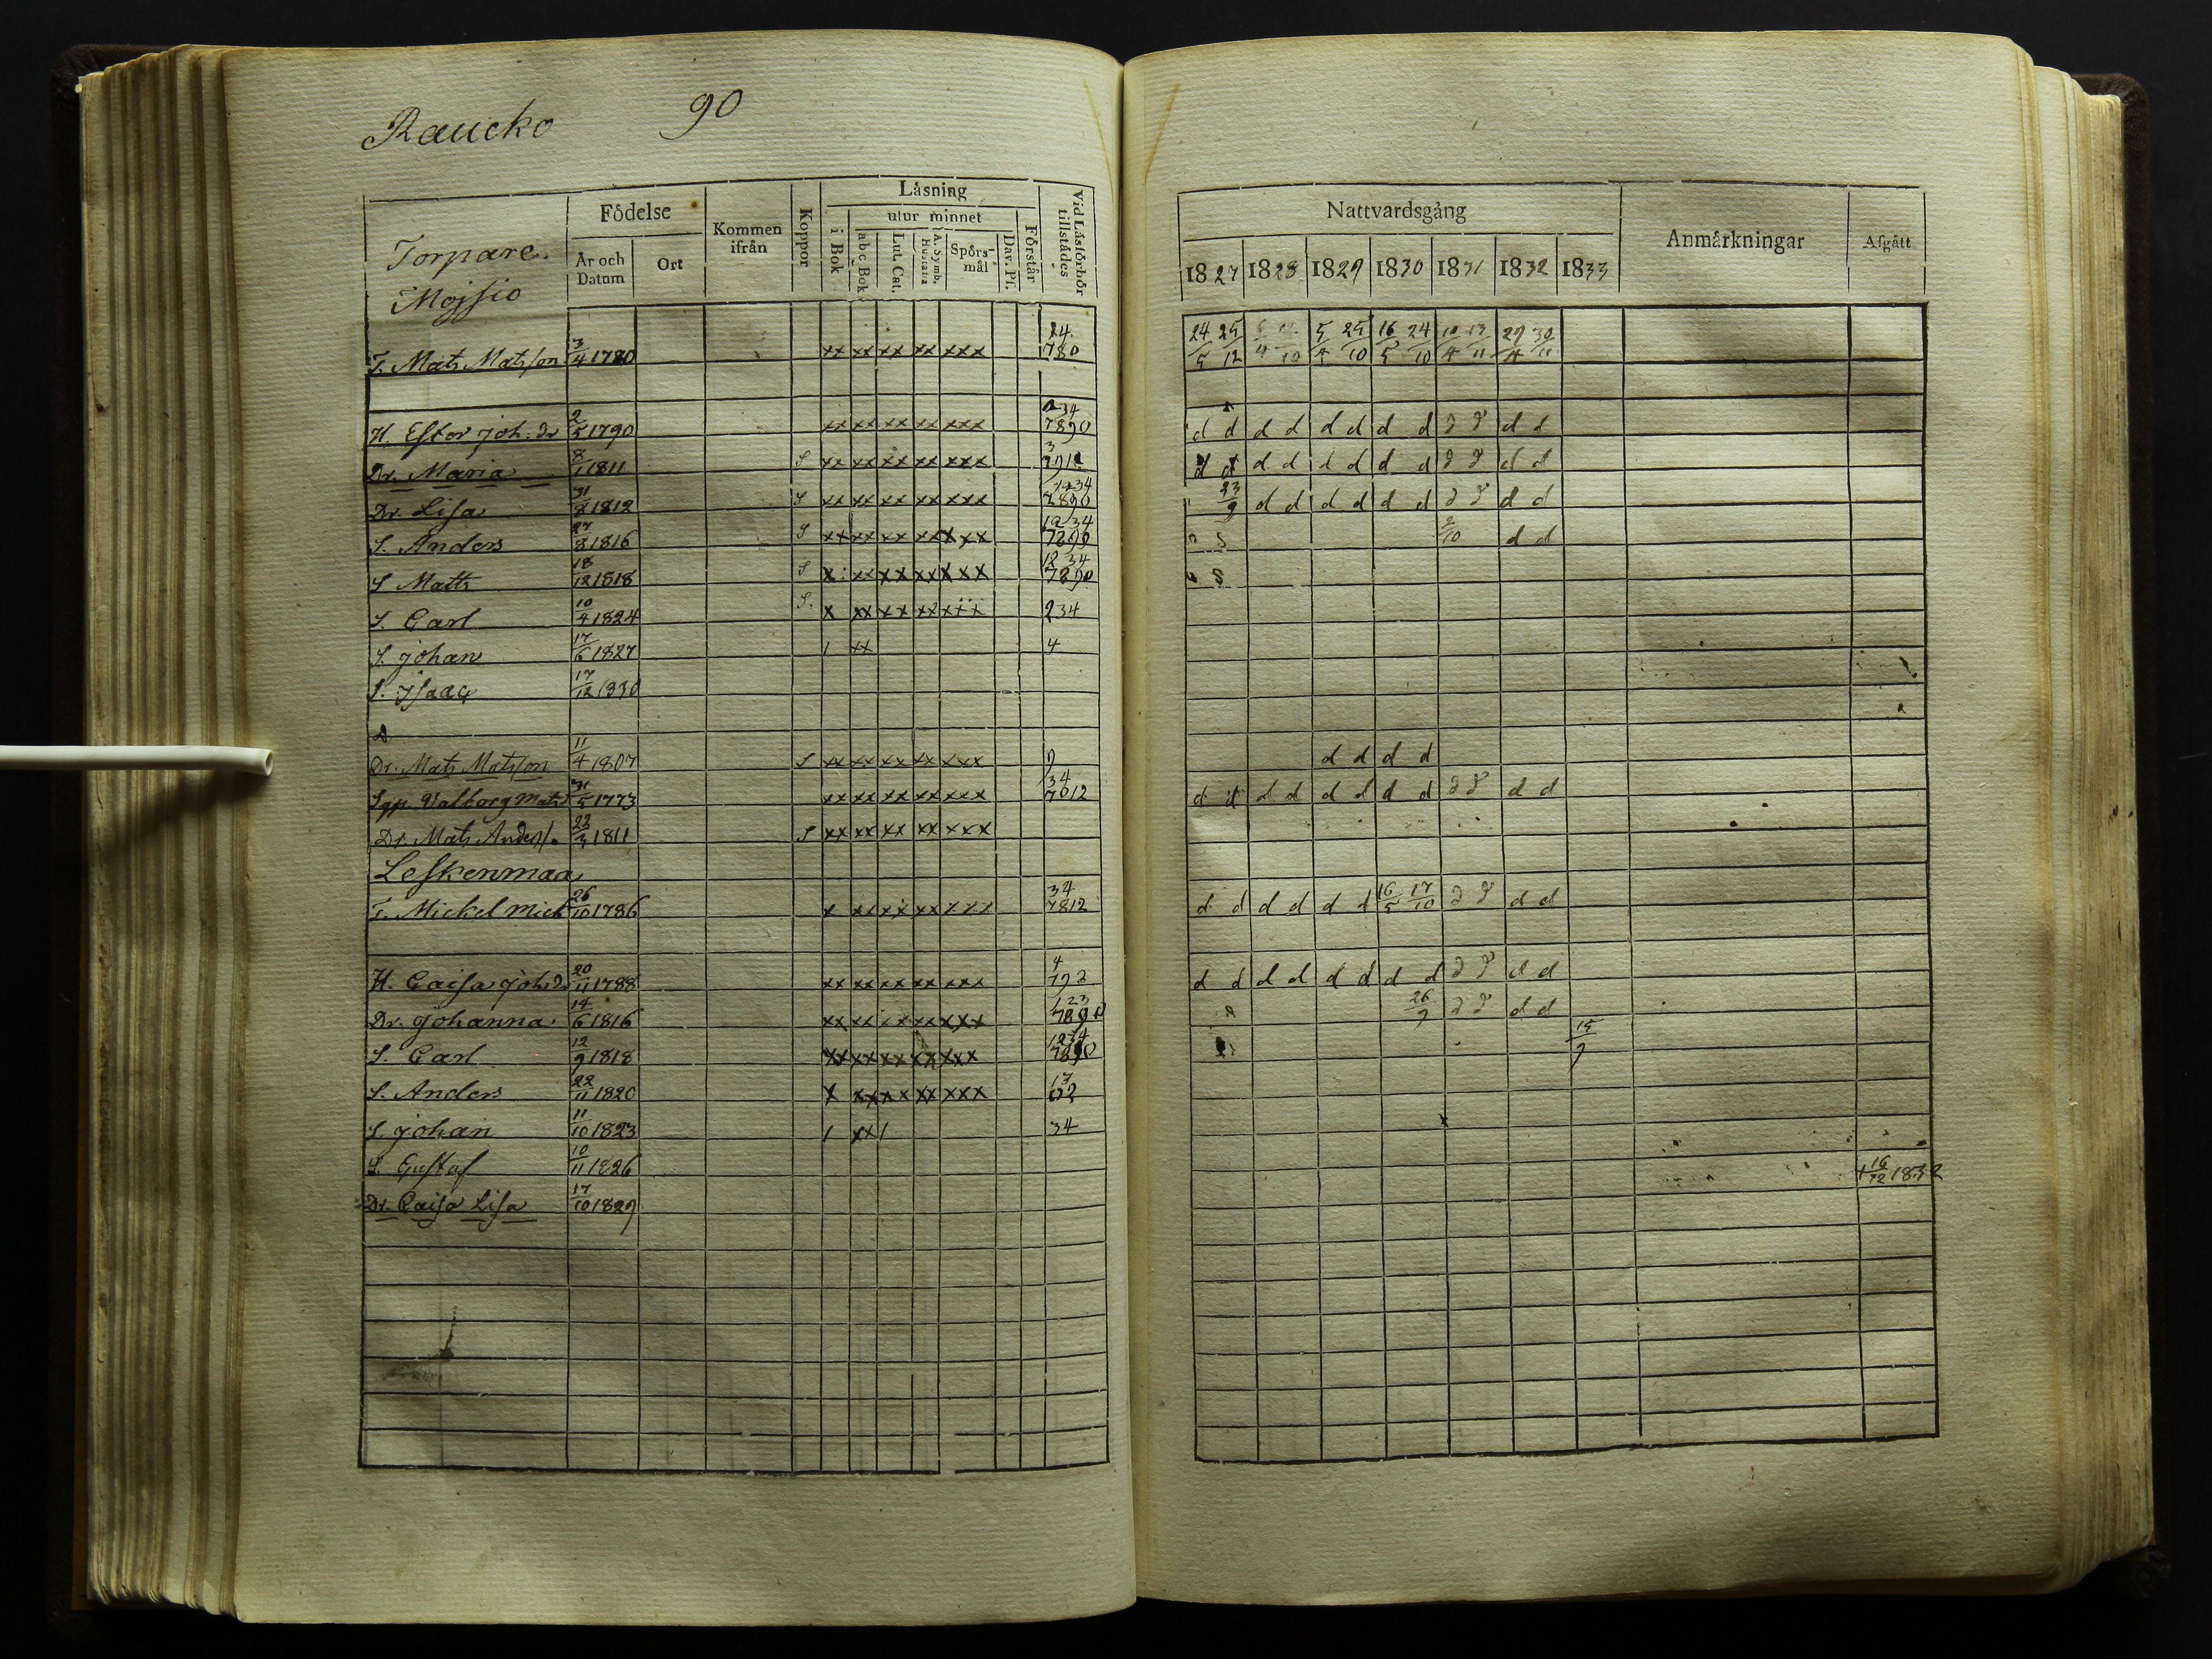 Raucko 90
Torpare.
Mojsio
Födelse
År och Datum
Ort
Kommen ifrån
Koppor
Läsning
i Bok
utur minnet
abc Bok
Lut. Cat.
A. Symb. Hustafla
Spörsmål
Dav. Ps.
Förstår
Vid Läsförhör tillstådes
T. Mats Matsson 3/4 1780 xx xx xx xx xxx 24 780
H. Ester Joh: dr 2/5 1790 xx xx xx xx xxx 234 7890
Dr. Maria 8/1 1811 S xx xx xx xx xxx 3
Dr. Lisa 31/8 1812 S xx xx xx xx xxx 7890
S. Anders 27/8 1816 S xx xx xx xx xxx 1234 7899
S Matts 18/12 1818 S x xx xx xx xxx 1234 7890
S. Carl 10/4 1824 S. x xx xx xx xxx 234
S. Johan 17/6 1827 1 xx 4
S. Isaac 17/12 1830
Dr. Mats Matsson 11/4 1807 S xx xx xx xx xxx 9
Valborg Mats 31/5 1773 xx xx xx xx xxx 34 7012
Dr. Mats Anderss. 22/3 1811 S xx xx xx xx xxx
Leskenmaa
T. Mickel Mick 26/10 1786 x xx xx xx xxx 34 7812
H. Caisa Johsdr 20/11 1788 xx xx xx xx xxx 4 792
Dr. Johanna 14/6 1816 xx xx xx xx xxx 123 7890
S. Carl 12/9 1818 xx xx xx xx xxx 1234 7890
S. Anders 22/11 1820 x xx xx xx xxx
S. Johan 11/10 1823 1 xx 1 34
S. Gustaf 10/11 1826
Dr. Caisa Lisa 17/10 1829
Nattvardsgång
Anmärkningar
Afgått
1827 1828 1829 1830 1831 1832 1833
24/5 25/12 5/4 25/10 16/5 24/10 10/4 13/11 29/4 30/11
d d d d d d d d d d d d
d d d d d d d d d d d d
23/9 d d d d d d d d d d
2/10 d d
d d d d
d d d d d d d d d d d d
d d d d d d 16/5 17/10 d d d d
d d d d d d d d d d d d
26/9 d d d d
15/9
† 16/12 1832